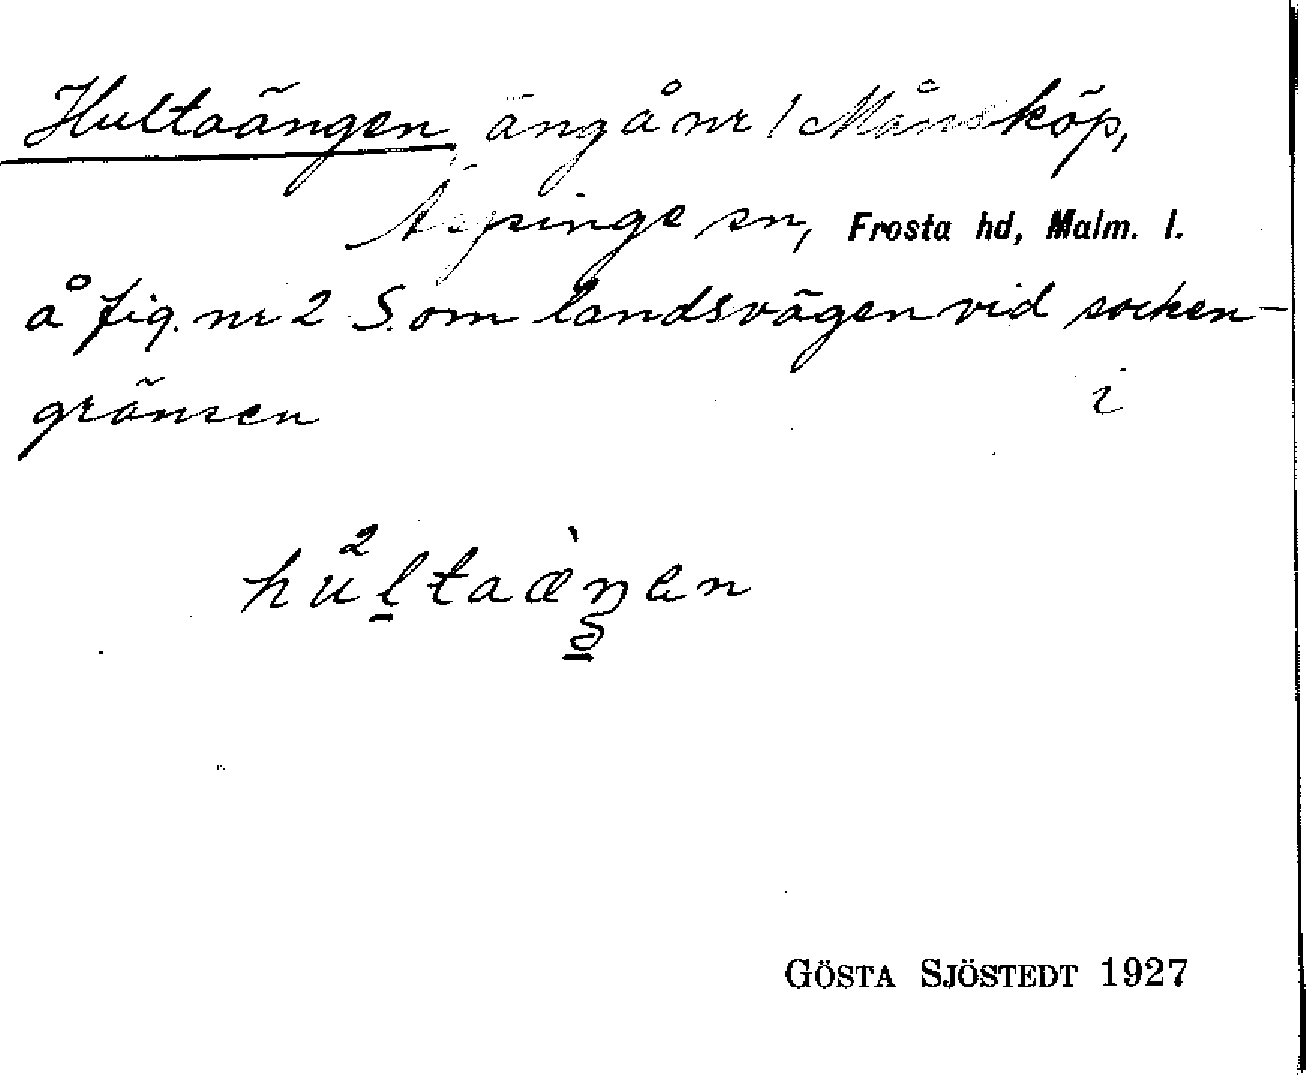 Hultaängen, äng å nr 1 Månsköp,
Äspinge sn, Frosta hd, Malm. l.
å fig. nr 2 S. om landsvägen vid socken-
gränsen i
hultaæŋen
GÖSTA SJÖSTEDT 1927